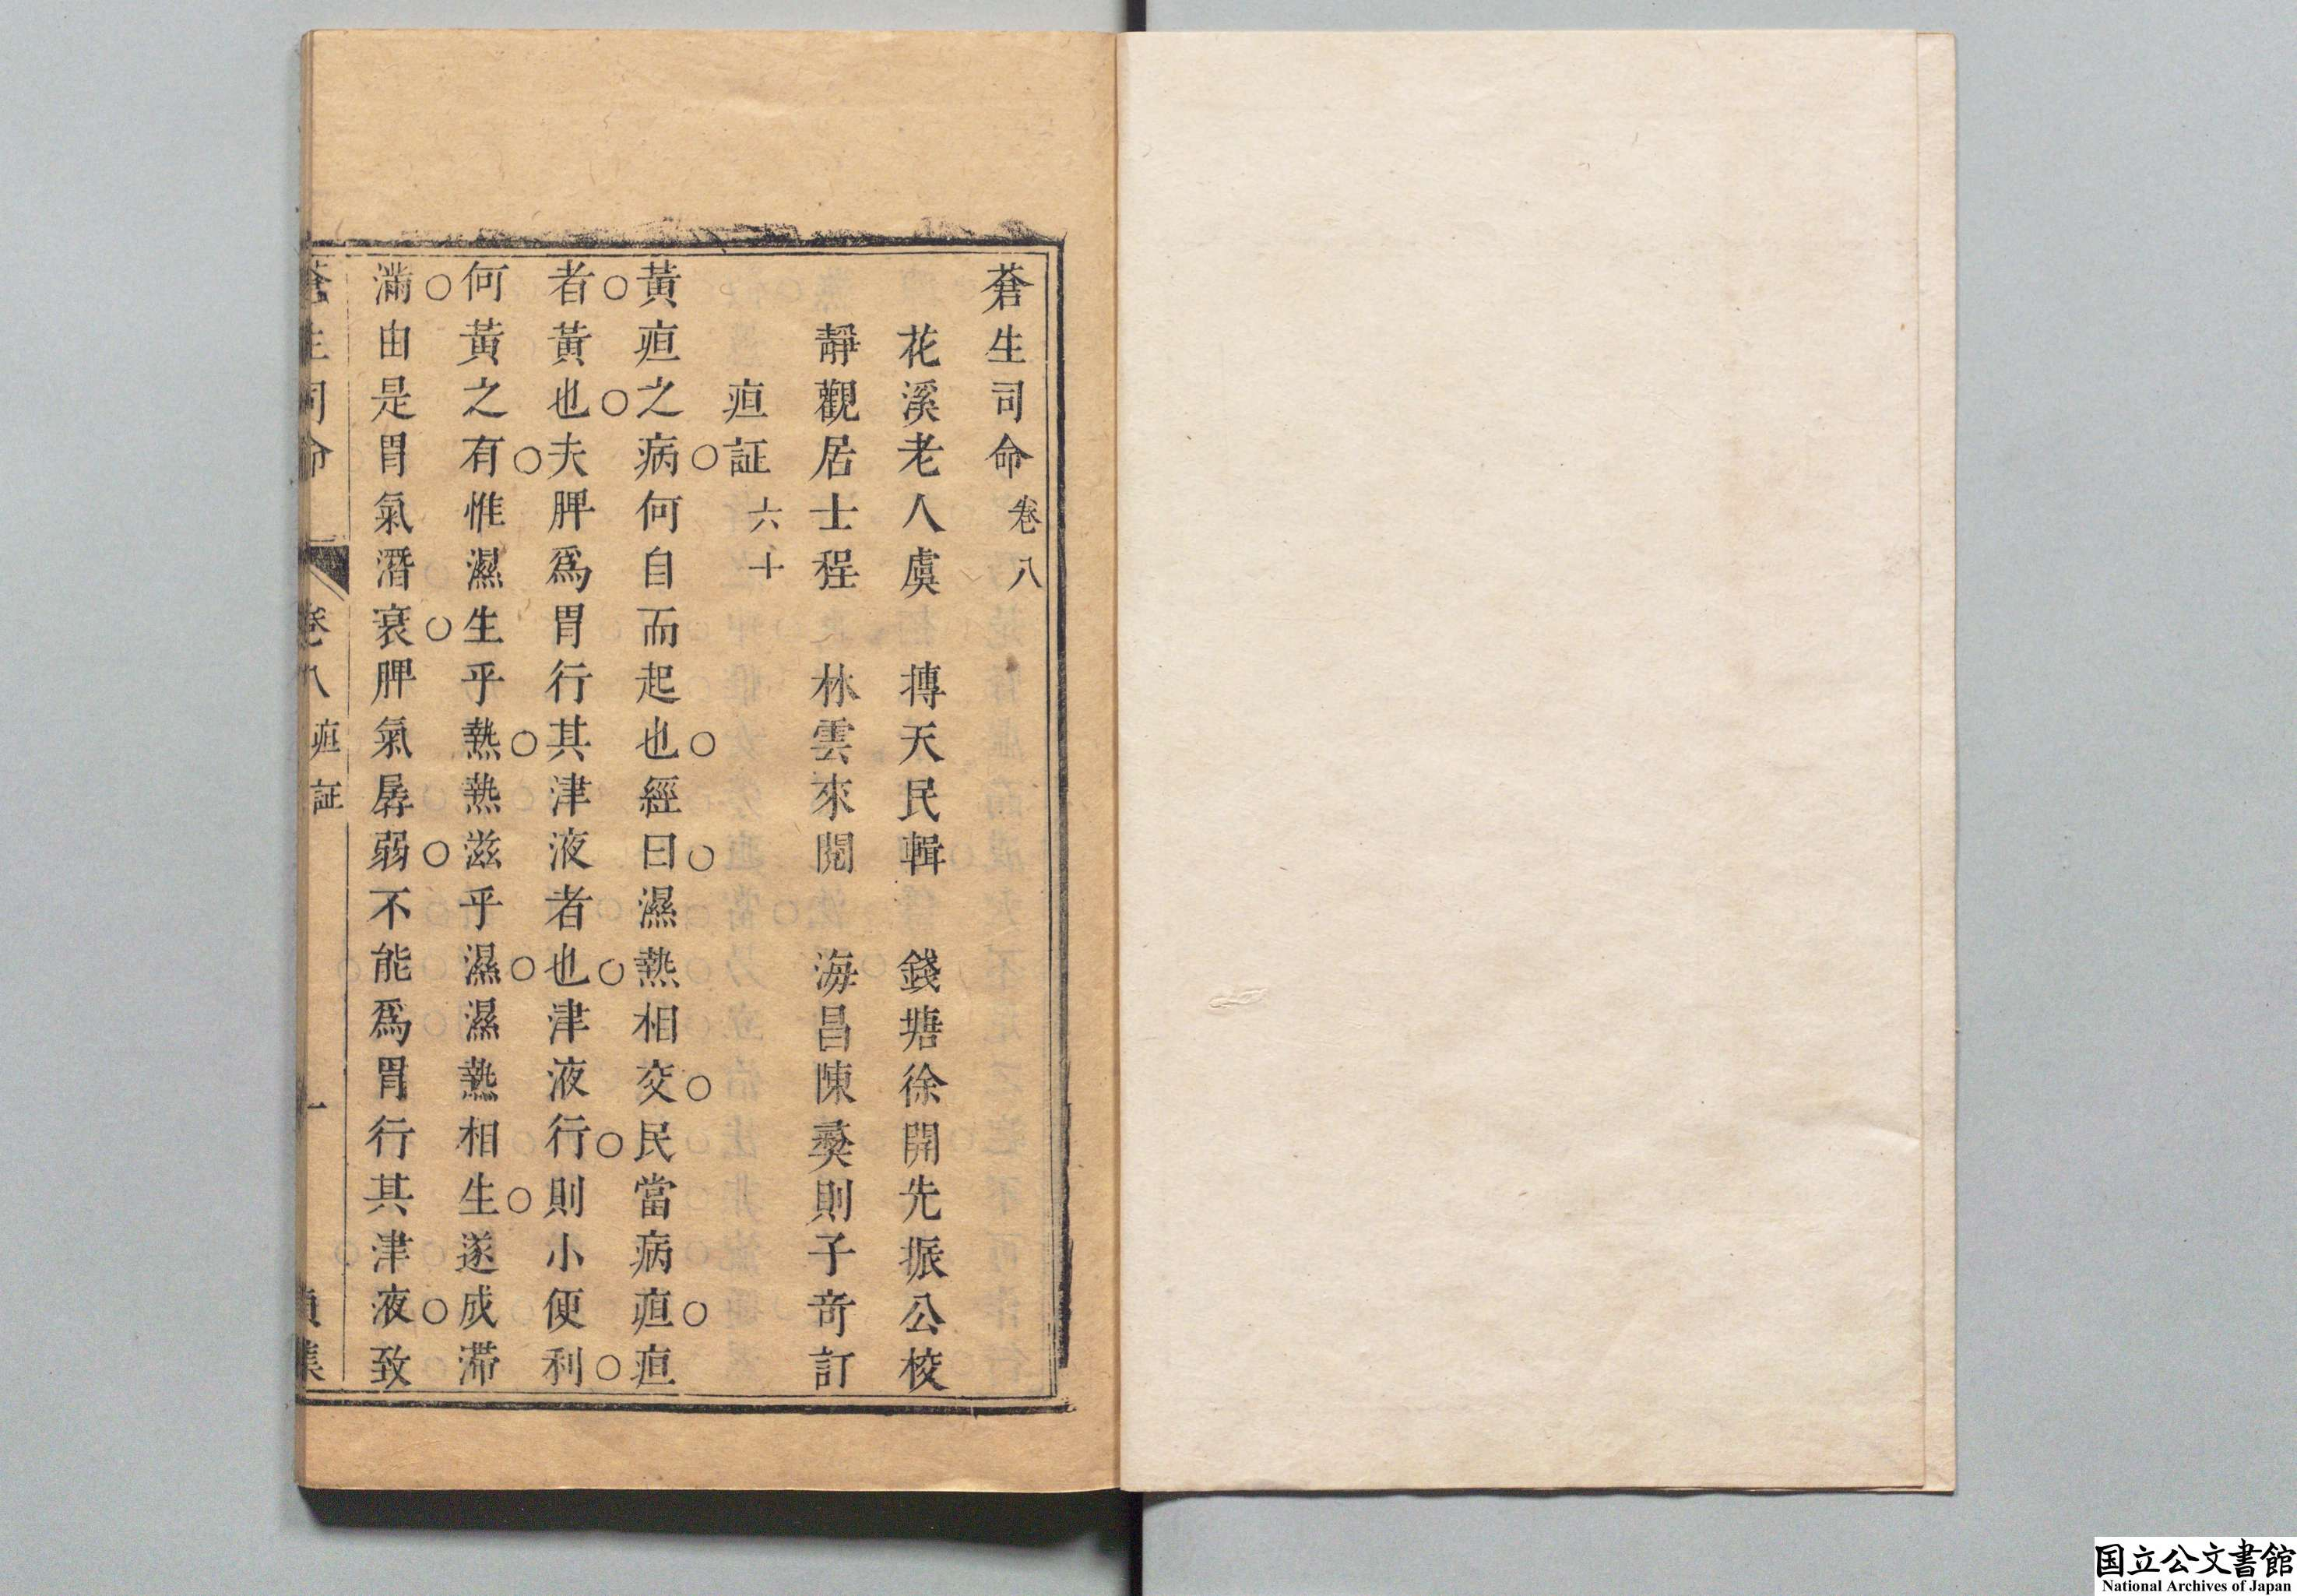 蒼生司命 卷八
花溪老人虞　摶天民輯　錢塘徐開先振公校
靜觀居士程　林雲來閱　海昌陳㷼則子竒訂
疸証 六十
黃疸之病何自而起也經曰濕熱相交民當病疸疸
者黃也夫脾爲胃行其津液者也津液行則小便利
何黃之有惟濕生乎熱熱滋乎濕濕熱相生遂成滯
滿由是胃氣潛衰脾氣孱弱不能爲胃行其津液致
蒼生司命 卷八 疸証 一 貞集
国立公文書館
National Archives of Japan